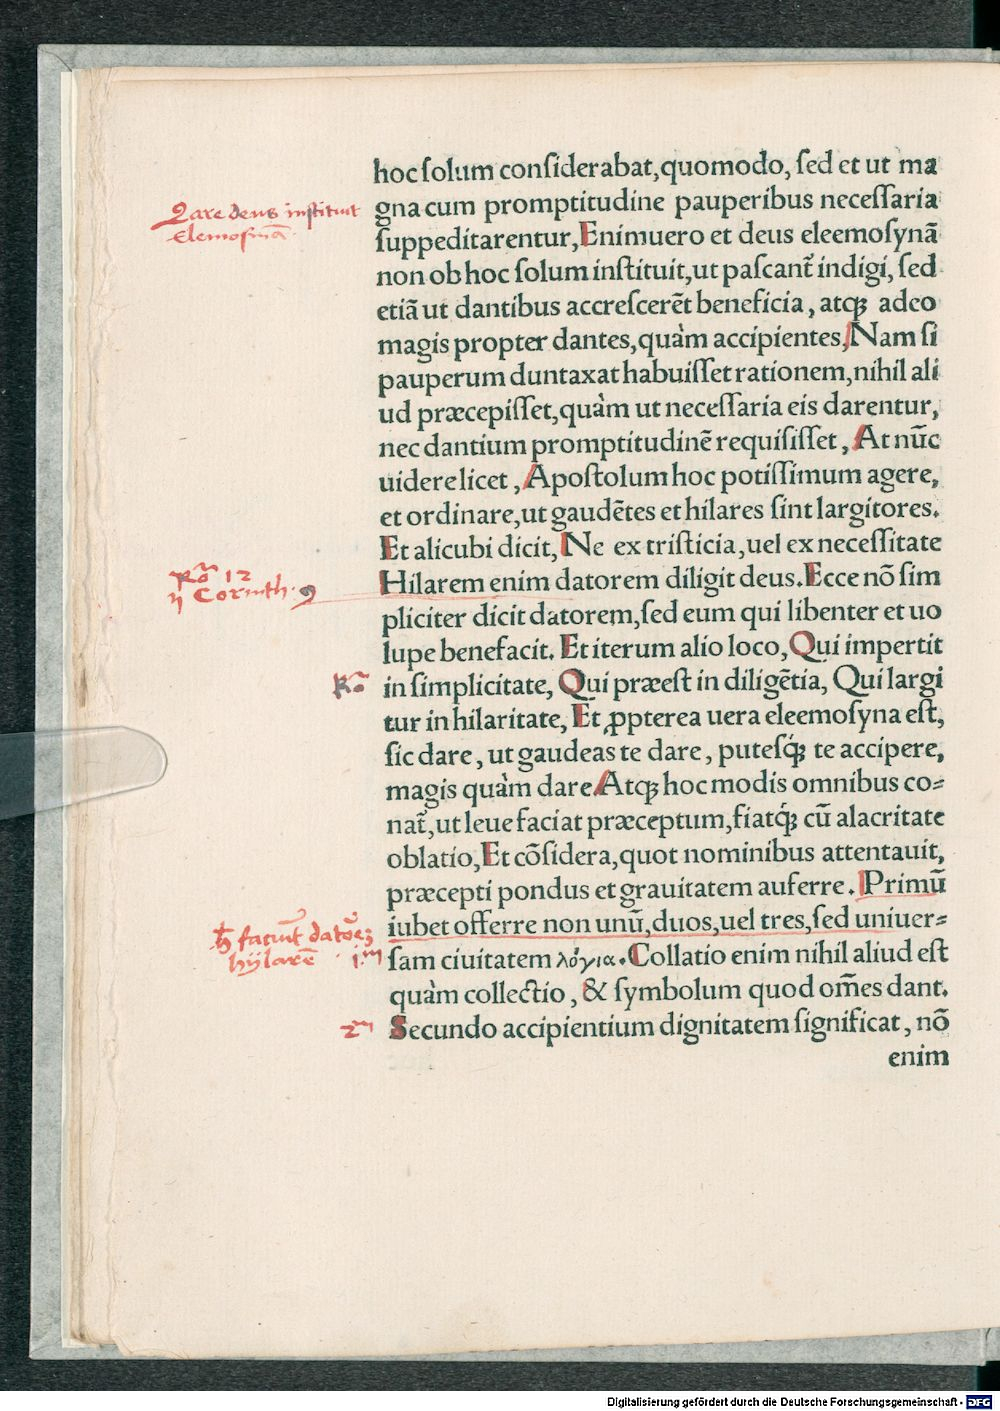 hoc ſolum conſiderabat,quomodo, ſed et ut ma
gna cum promptitudine pauperibus neceſſaria
ſuppeditarentur,Enimuero et deus eleemoſynã
non ob hoc ſolum inſtituit,ut paſcant᷑ indigi, ſed
etiã ut dantibus accreſcerẽt beneficia, atqꝫ adeo
magis propter dantes,quàm accipientes,Nam ſi
pauperum duntaxat habuiſſet rationem,nihil ali
ud præcepiſſet,quàm ut neceſſaria eis darentur,
nec dantium promptitudinẽ requiſiſſet, At nũc
uidere licet, Apoſtolum hoc potiſſimum agere,
et ordinare,ut gaudẽtes et hilares ſint largitores.
Et alicubi dicit,Ne ex triſticia,uel ex neceſſitate
Hilarem enim datorem diligit deus.Ecce nõ ſim
pliciter dicit datorem,ſed eum qui libenter et uo
lupe benefacit. Et iterum alio loco, Qui impertit
in ſimplicitate, Qui præeſt in diligẽtia, Qui largi
tur in hilaritate, Et ꝓpterea uera eleemoſyna eſt,
ſic dare, ut gaudeas te dare, puteſqꝫ́ te accipere,
magis quàm dare Atqꝫ hoc modis omnibus co⸗
nat᷑,ut leue faciat præceptum,fiatqꝫ́ cũ alacritate
oblatio,Et cõſidera,quot nominibus attentauit,
præcepti pondus et grauitatem auferre. Primũ
iubet offerre non unũ,duos,uel tres,ſed uniuer⸗
ſam ciuitatem λόγια. Collatio enim nihil aliud eſt
quàm collectio, & ſymbolum quod om̃es dant.
Secundo accipientium dignitatem ſignificat, nõ
enim
Qare deus inſtituit
Elemoſinã
Ro 12
ij Corinth. 9
Ro
faciũt datorẽ
hylarẽ
i.m
2m
Digitalisierung gefördert durch die Deutsche Forschungsgemeinschaft - DFG